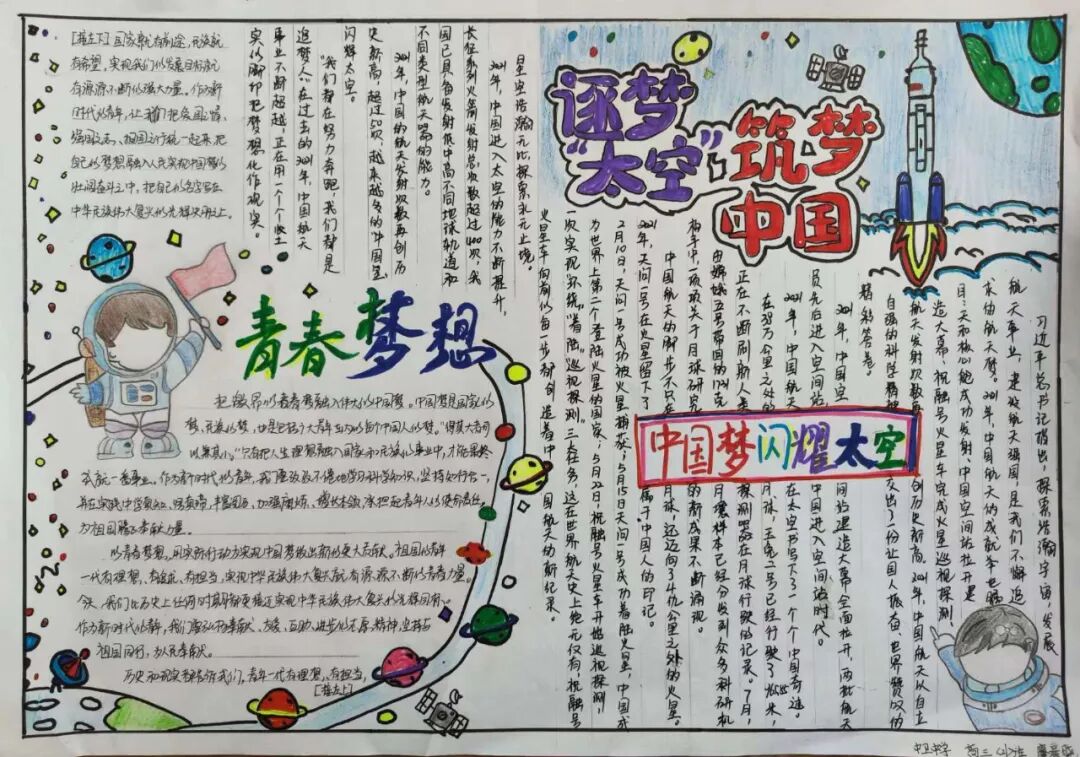 逐梦
“太空”,筑梦
中国
习近平总书记指出，探索浩瀚宇宙，发展
航天事业，建设航天强国，是我们不懈追
求的航天梦。2021年，中国航天的成就举世瞩
目：天和核心舱成功发射、中国空间站拉开建
造大幕，祝融号火星车完成火星巡视探测，
航天发射次数再创历史新高。2021年，中国航天从自立
自强的科学精神 交出了一份让国人振奋、世界赞叹的
精彩答卷。
2021年，中国空 间站建造大幕全面拉开，两批航天
员先后进入空间站 中国进入空间站时代。
2021年，中国航天 在太空书写下了一个个中国奇迹。
在38万公里之外的 月球，玉兔二号已经行驶了 米，
正在不断刷新人类 探测器在月球行驶的记录。7月，
由嫦娥五号带回的1731克 月壤样本已经分发到众多科研机
构手中一项项关于月球研究 的新成果不断涌现。
中国航天的脚步不只在 月球，还迈向了4亿公里之外的火星。
2021年，天问一号在火星留下了 属于中国人的印记。
2月10日，天问一号成功被火星捕获，5月15日天问一号成功着陆火星，中国成
为世界上第二个登陆火星的国家，5月22日，祝融号火星车开始巡视探测，
一次实现“环绕”“着陆”“巡视探测”三大任务，这在世界航天史上绝无仅有，祝融号
火星车向前的每一步都创造着中国航天的新纪录。
中国梦闪耀太空
星空浩瀚无比，探索永无止境。
2021年，中国进入太空的能力不断提升，
长征系列火箭发射总次数超过400次，我
国已具备发射低中高不同地球轨道和
不同类型航天器的能力。
2021年，中国的航天发射次数再创历
史新高，超过50次，越来越多的“中国星”
闪耀太空。
“我们都在努力奔跑，我们都是
追梦人”在过去的2021年，中国航天
事业不断超越，正在用一个个坚实
实的脚印把梦想化作现实。
青春梦想
把激昂的青春梦融入伟大的中国梦。中国梦是国家的
梦、民族的梦，也是包括广大青年在内的每个中国人的梦。“得其大者可
以兼其小。”只有把人生理想融入国家和民族的事业中，才能最终
成就一番事业。作为新时代的青年，我们要孜孜不倦地学习科学知识，坚持知行合一，
并在实践中学真知、悟真谛，丰富阅历，加强磨炼、增长本领，承担起青年人的使命责任，
为祖国腾飞奉献力量。
以青春梦想，用实际行动为实现中国梦做出新的更大贡献。祖国的青年
一代有理想、有追求、有担当，实现中华民族伟大复兴就有源源不断的青春力量。
今天，我们比历史上任何时期都更接近实现中华民族伟大复兴的光辉目标。
作为新时代的青年，我们要弘扬奉献、友爱、互助、进步的志愿精神，坚持与
祖国同行，为人民奉献。
历史和现实都告诉我们，青年一代有理想、有担当，
[接左上]
[接左下]国家就有前途，民族就
有希望，实现我们的发展目标就
有源源不断的强大力量。作为新
时代的青年，让我们把爱国之情、
强国之志、报国之行统一起来，把
自己的梦想融入人民实现中国梦的
壮阔奋斗之中，把自己的名字写在
中华民族伟大复兴的光辉史册上。
中卫中学 高三(小)班